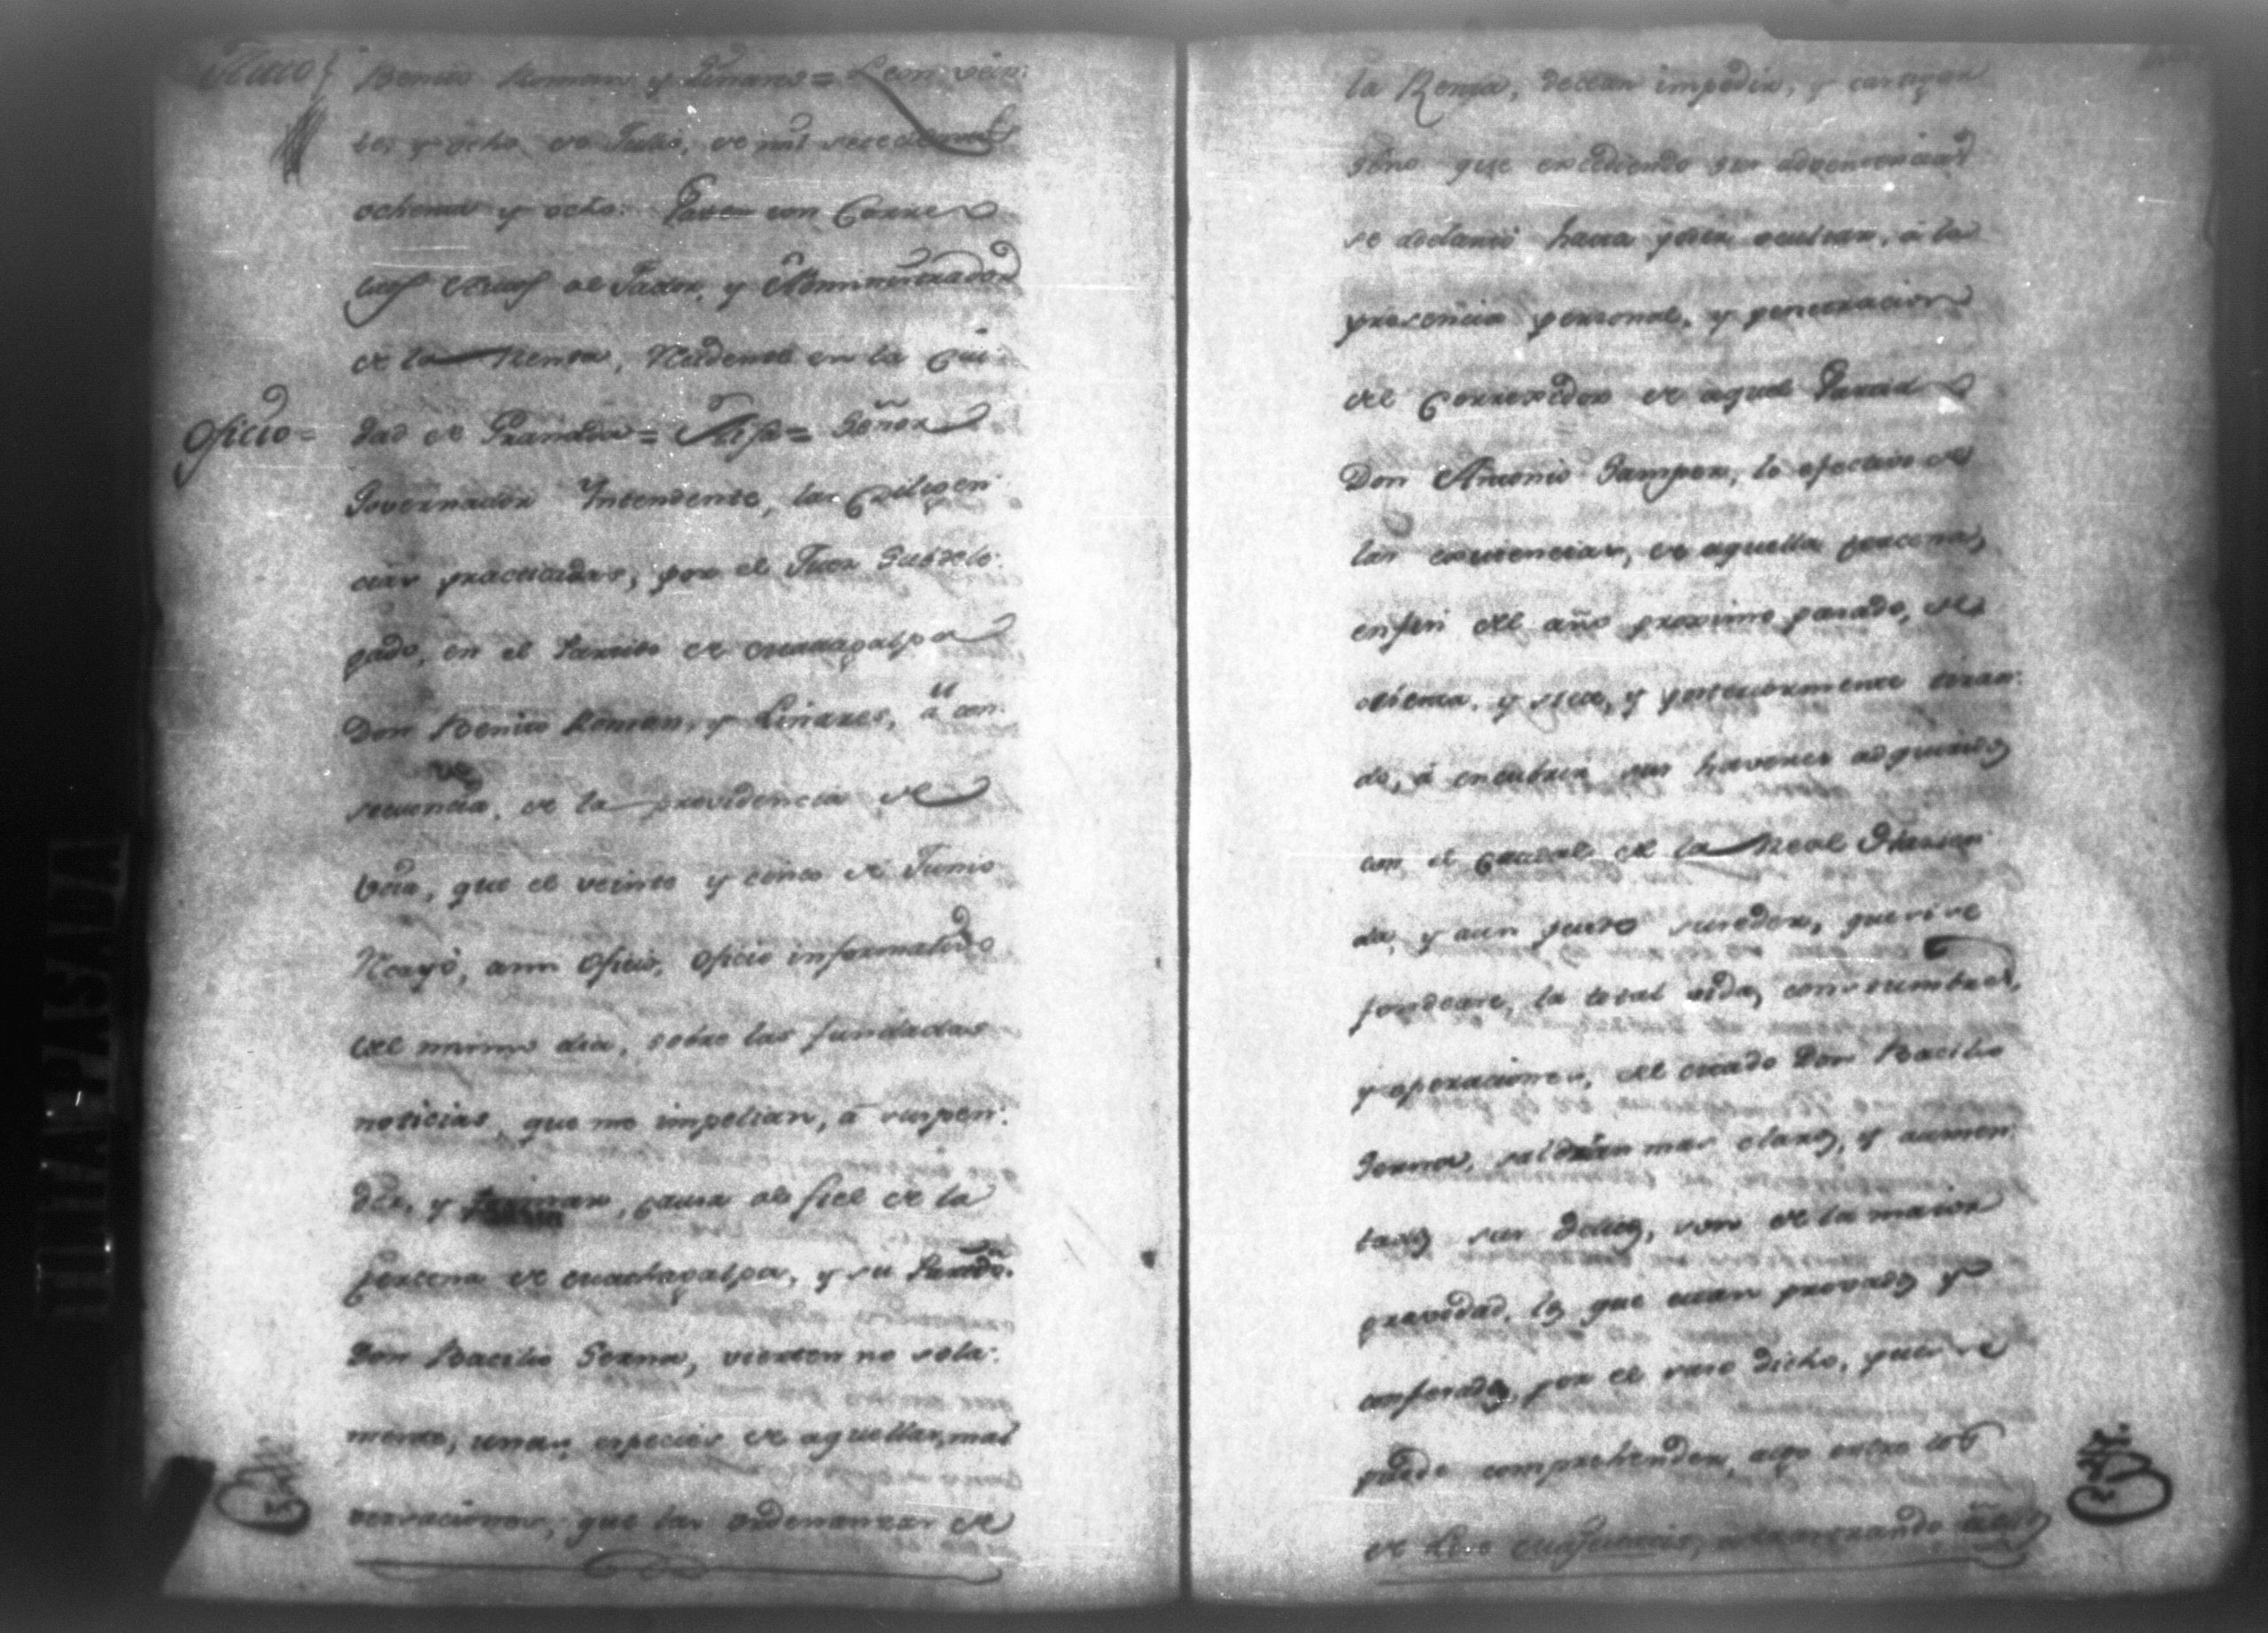 Auto
Benito Roman y Linares = Leon vein-
te, y ocho de Julio, de mil setecientos
ochenta y ocho. Pasen con Corres
al Factor, y Administrador
de la Renta, Recidente en la Ciu-
Oficio =
dad de Granada = = Señor
Governador Yntendente, las diligen-
cias practicadas, por el Juez Subdele-
gado, en el Partido de Matagalpa
Don Benito Roman, y Linares, á con-
secuencia, de la providencia de
que el veinte y cinco de Junio
Recayó, a mi Oficio, Oficio informativo
del mismo dia, sobre las fundadas
noticias, que me impelian, á suspen-
der, y causa al fiel de la
tercena de Matagalpa, y su Partido
Don Bacilio Serna, vierten no sola-
mente, unas especies de aquellas, mal
versaciones, que las ordenanzas de
la Renta, decean impedir, y castigar
sino que excediendo sus advertencias
se adelantó hasta poder ocultar, á la
presencia personal, y penetracion
del Corregidor de aquel Partido
Don Antonio Samper, lo efectivo de
las existencias, de aquella tercena,
en fin del año proximo pasado, de
ochenta, y siete, y posteriormente tiran-
do, á encubrir sus haveres adquiridos
con el caudal de la Real Hacien-
da, y aun puede suceder, que si se
sondeare, la total vida, constumbres,
y operaciones, del citado Don Bacilio
Serna, saldrian mas claros, y aumen-
tados sus delitos, son de la maior
gravedad, los que estan provados y
confesados, por el caso dicho, pues se
puede comprehender, algo entre los
de Lesa Magestad,